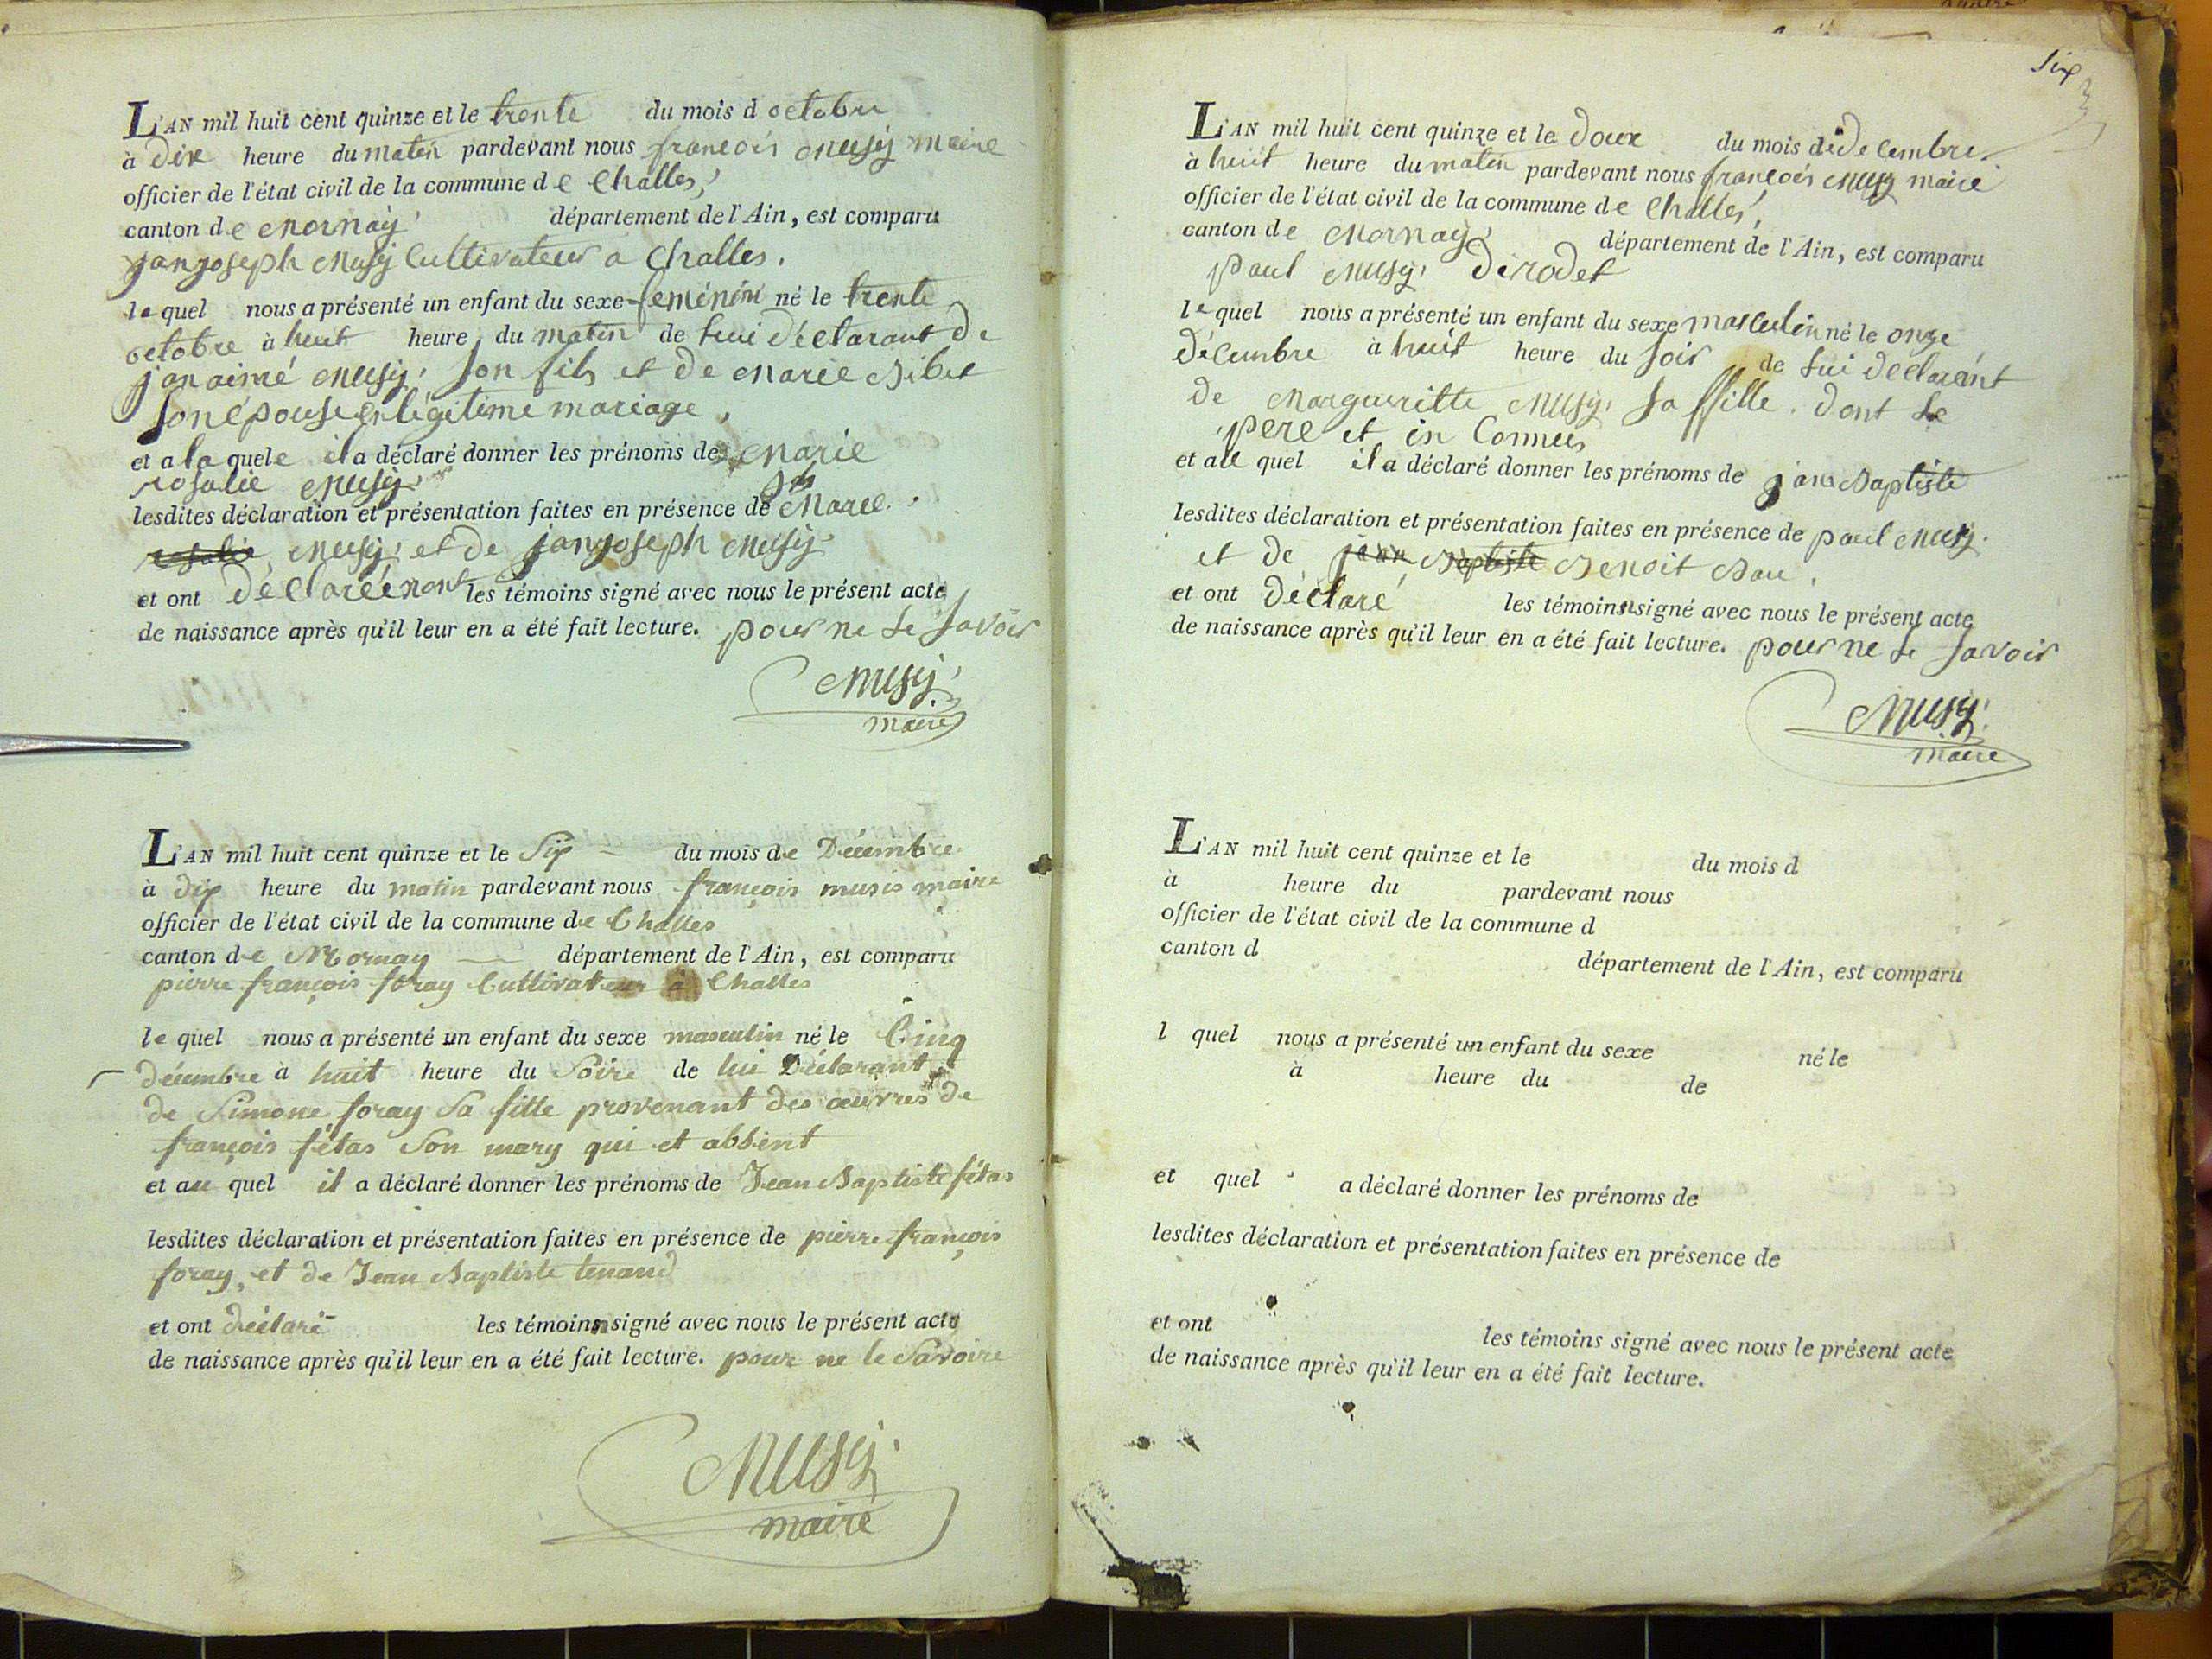 L'AN mil huit cent quinze et le trente du mois d octobre
à dix heure du matin pardevant nous françois Musÿ maire
officier de l'état civil de la commune de Challes,
canton de Mornaÿ département de l'Ain, est comparu
janjoseph Musÿ Cultivateur a Challes.
le quel nous a présenté un enfant du sexe feminin né le trente
octobre à huit heure du matin de lui déclarant de
jan aimé Musÿ son fils et de Marie
son épouse en légitime mariage,
et a la quele il a déclaré donner les prénoms de Marie
rosalie Musÿ
lesdites déclaration et présentation faites en présence de Marie
rosalie Musÿ et de janjoseph Musÿ
et ont declaré nont les témoins signé avec nous le présent acte
de naissance après qu'il leur en a été fait lecture. pour ne le savoir
Musÿ
maire
L'AN mil huit cent quinze et le Six du mois de Décembre
à dix heure du matin pardevant nous françois musis maire
officier de l'état civil de la commune de Challes
canton de Mornay département de l'Ain, est comparu
pierre françois foray Cultivateur à Challes
le quel nous a présenté un enfant du sexe masculin né le Cinq
décembre à huit heure du Soire de lui Déclarant
de Simone foray Sa fille provenant des œuvres de
françois fétas Son mary qui et absent
et au quel il a déclaré donner les prénoms de Jean Baptiste fétas
lesdites déclaration et présentation faites en présence de pierre françois
foray, et de Jean Baptiste tenand
et ont déclaré les témoins n signé avec nous le présent acte
de naissance après qu'il leur en a été fait lecture. pour ne le Savoire
Musÿ
maire
Six
L'AN mil huit cent quinze et le douze du mois de decembre
à huit heure du matin pardevant nous françois Musÿ maire
officier de l'état civil de la commune de Challes,
canton de Mornaÿ département de l'Ain, est comparu
paul Musÿ derodet
le quel nous a présenté un enfant du sexe masculin né le onze
décembre à huit heure du soir de lui declarant
de Margueritte Musÿ sa fille. dont le
pere et in Connus
et au quel il a déclaré donner les prénoms de jan Baptiste
lesdites déclaration et présentation faites en présence de paul Musÿ
et de jean Baptiste Benoit
et ont déclaré les témoins n signé avec nous le présent acte
de naissance après qu'il leur en a été fait lecture. pour ne le savoir
Musÿ
maire
L'AN mil huit cent quinze et le du mois d
à heure du pardevant nous
officier de l'état civil de la commune d
canton d département de l'Ain, est comparu
l quel nous a présenté un enfant du sexe né le
à heure du de
et quel a déclaré donner les prénoms de
lesdites déclaration et présentation faites en présence de
et ont les témoins signé avec nous le présent acte
de naissance après qu'il leur en a été fait lecture.